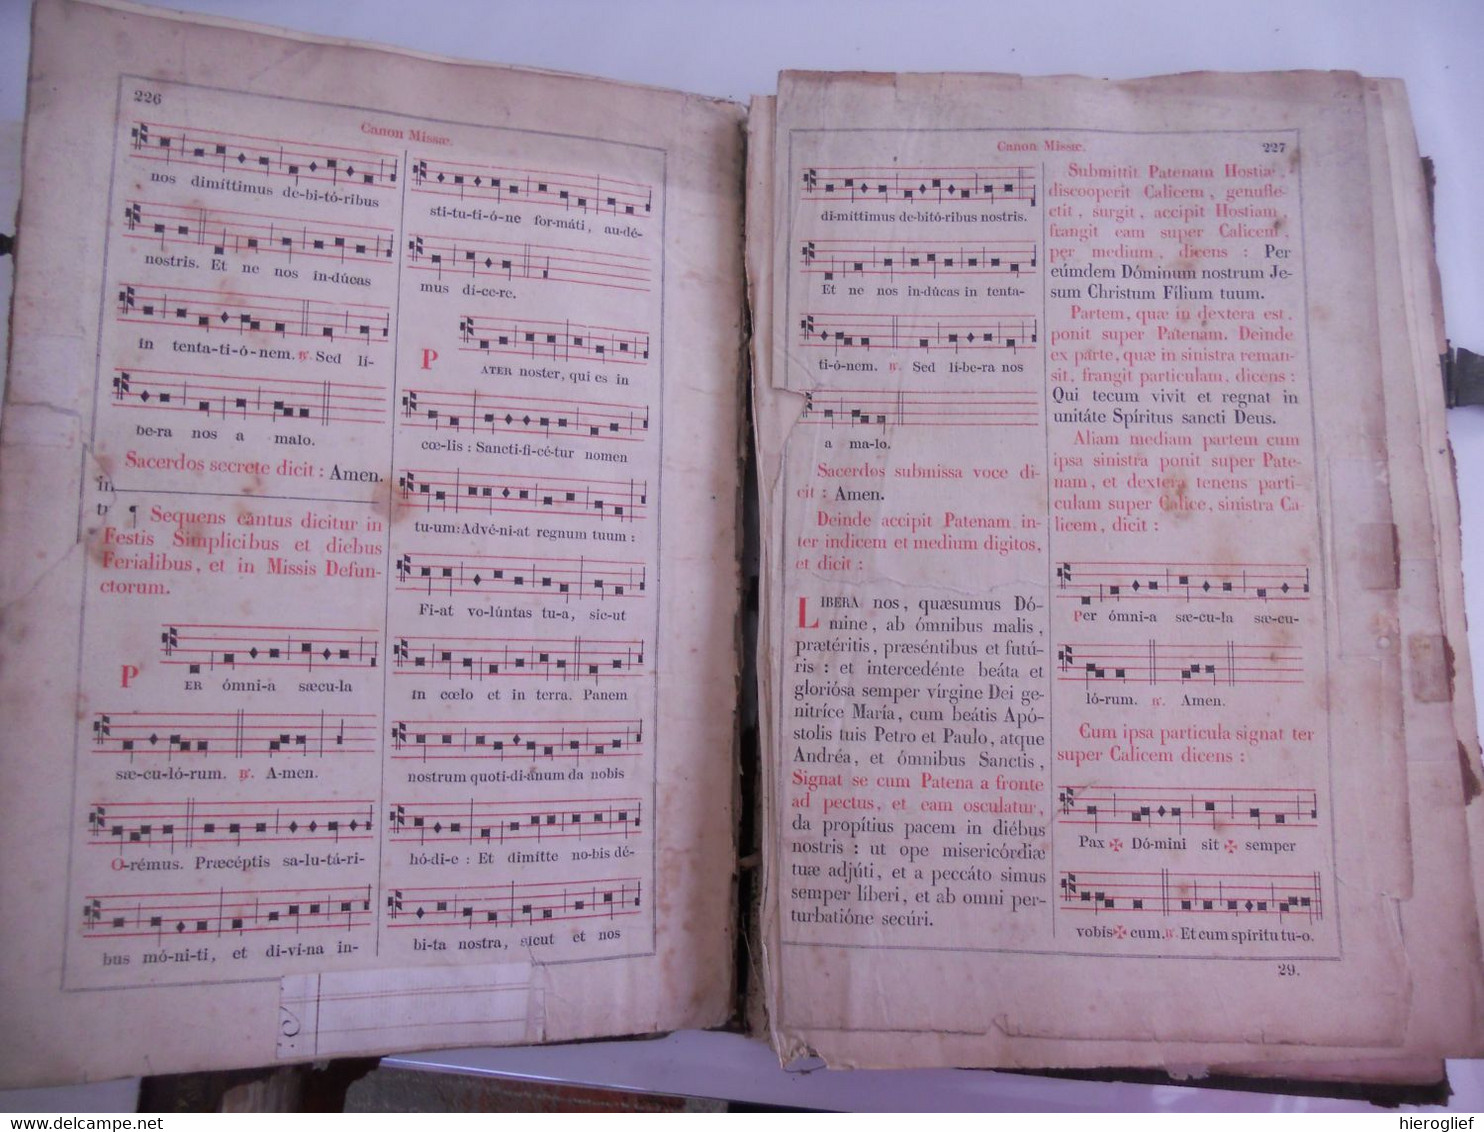 226
Canon Missæ.
nos dimíttimus de-bi-tó-ribus
nostris. Et ne nos in-dúcas
in tenta-ti-ó-nem. ℟. Sed lí-
be-ra nos a malo.
Sacerdos secrete dicit : Amen.
in
¶ Sequens cantus dicitur in
Festis Simplicibus et diebus
Ferialibus, et in Missis Defun-
ctorum.
PER ómni-a sæcu-la
sæ-cu-ló-rum. ℟. A-men.
O-rémus. Præcéptis sa-lu-tá-ri-
bus mó-ni-ti, et di-vi-na in-
sti-tu-ti-ó-ne for-máti, au-dé-
mus dí-ce-re.
PATER noster, qui es in
cœ-lis : Sancti-fi-cé-tur nomen
tu-um: Advé-ni-at regnum tuum :
Fi-at vo-lúntas tu-a, sic-ut
in cœlo et in terra. Panem
nostrum quoti-di-ánum da nobis
hó-di-e : Et dimítte no-bis dé-
bi-ta nostra, sicut et nos
Canon Missæ.
227
di-míttimus de-bitó-ribus nostris.
Et ne nos in-dúcas in tenta-
ti-ó-nem. ℟. Sed lí-be-ra nos
a ma-lo.
Sacerdos submissa voce di-
cit : Amen.
Deinde accipit Patenam in-
ter indicem et medium digitos,
et dicit :
LIBERA nos, quæsumus Dó-
mine, ab ómnibus malis,
prætéritis, præséntibus et futú-
ris : et intercedénte beáta et
gloriósa semper vírgine Dei ge-
nitríce María, cum beátis Apó-
stolis tuis Petro et Paulo, atque
Andréa, et ómnibus Sanctis,
Signat se cum Patena a fronte
ad pectus, et eam osculatur,
da propítius pacem in diébus
nostris : ut ope misericórdiæ
tuæ adjúti, et a peccáto simus
semper líberi, et ab omni per-
turbatióne secúri.
Submittit Patenam Hostiæ,
discooperit Calicem, genufle-
ctit, surgit, accipit Hostiam,
frangit eam super Calicem,
per medium, dicens : Per
eúmdem Dóminum nostrum Je-
sum Christum Fílium tuum.
Partem, quæ in dextera est,
ponit super Patenam. Deinde
ex parte, quæ in sinistra reman-
sit, frangit particulam, dicens :
Qui tecum vivit et regnat in
unitáte Spíritus sancti Deus.
Aliam mediam partem cum
ipsa sinistra ponit super Pate-
nam, et dextera tenens parti-
culam super Calice, sinistra Ca-
licem, dicit :
Per ómni-a sæ-cu-la sæ-cu-
ló-rum. ℟. Amen.
Cum ipsa particula signat ter
super Calicem dicens :
Pax ✠ Dó-mini sit ✠ semper
vobis ✠ cum. ℟. Et cum spíritu tu-o.
29.
hieroglief